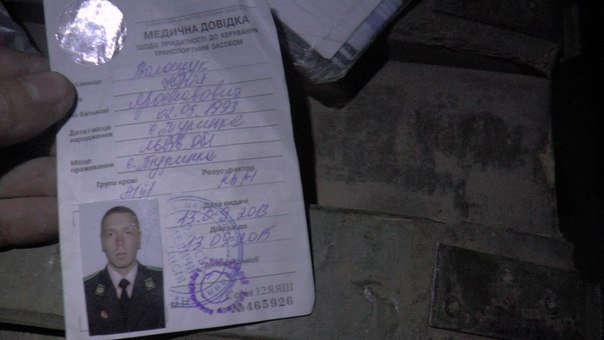 МЕДИЧНА ДОВІДКА
ЩОДО ПРИДАТНОСТІ ДО КЕРУВАННЯ
ТРАНСПОРТНИМ ЗАСОБОМ
Волощук
Юрій
Ярославович
по батькові
02.05.1993
Дата і місце
народження
с. Туринка
Львів обл
Місце
проживання
с. Туринка
Група крові
Резус-фактор
Дата видачі
13.09.2013
Дійсна до
13.09.2015
Серія 12ЯЯШ
№465926